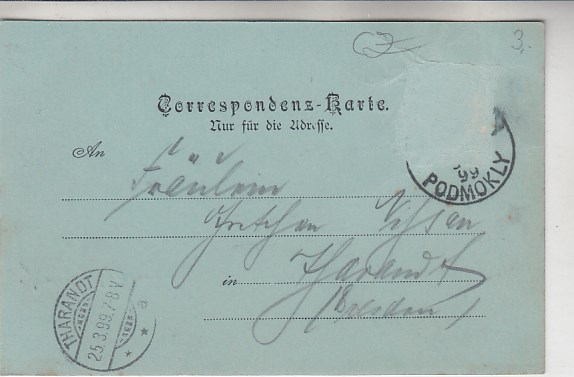 3.
Correspondenz-Karte.
Nur für die Adresse.
An
Fräulein
Gretchen
in Tharandt
(Dresden)
99
PODMOKLY
THARANDT
25.3.99.7-8V
a